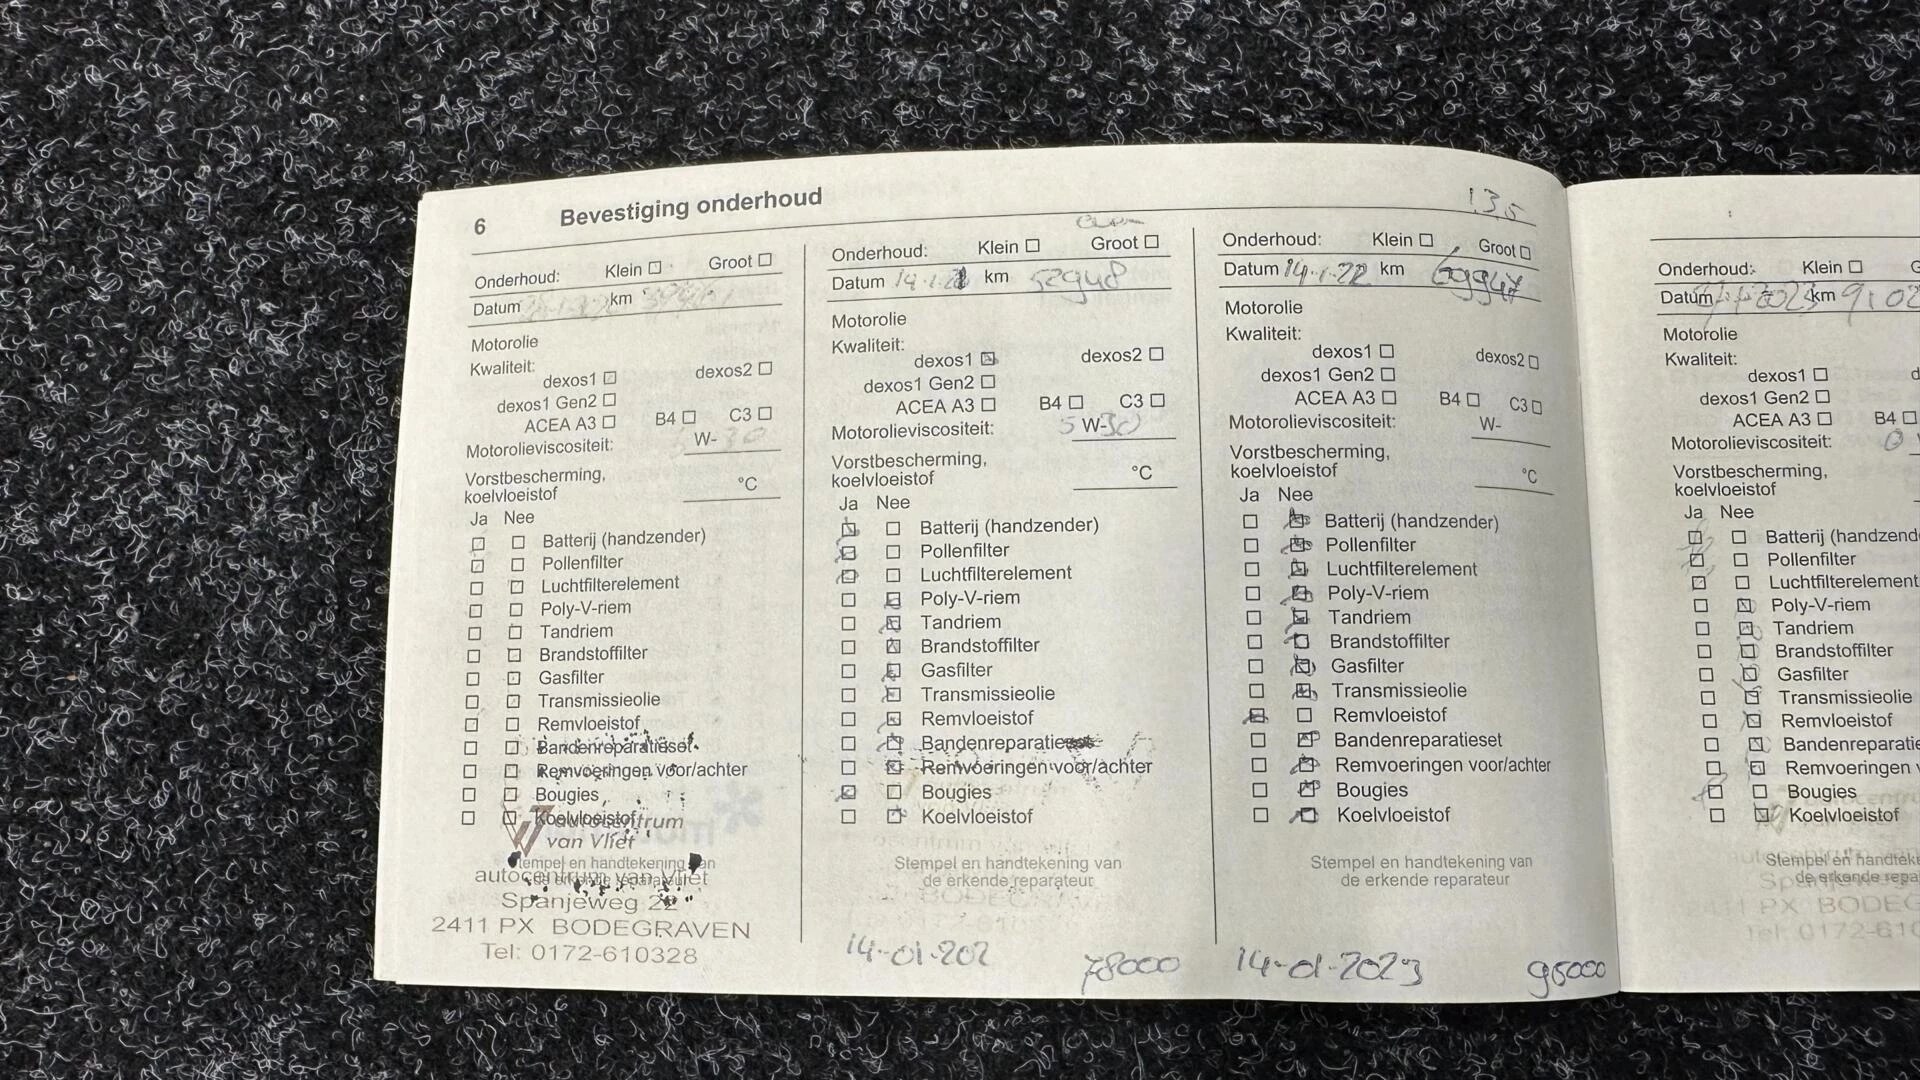 6 Bevestiging onderhoud
135
Onderhoud: Klein Groot
Datum km
Motorolie
Kwaliteit:
dexos1 dexos2
dexos1 Gen2
ACEA A3 B4 C3
Motorolieviscositeit: W-30
Vorstbescherming,
koelvloeistof °C
Ja Nee
Batterij (handzender)
Pollenfilter
Luchtfilterelement
Poly-V-riem
Tandriem
Brandstoffilter
Gasfilter
Transmissieolie
Remvloeistof
Bandenreparatieset
Remvoeringen voor/achter
Bougies
Koelvloeistof
autocentrum
van Vliet
Stempel en handtekening van
de erkende reparateur
autocentrum van Vliet
Spanjeweg 22
2411 PX BODEGRAVEN
Tel: 0172-610328
Onderhoud: Klein Groot
Datum 14-1-21 km 52948
Motorolie
Kwaliteit:
dexos1 dexos2
dexos1 Gen2
ACEA A3 B4 C3
Motorolieviscositeit: 5 W-30
Vorstbescherming,
koelvloeistof °C
Ja Nee
Batterij (handzender)
Pollenfilter
Luchtfilterelement
Poly-V-riem
Tandriem
Brandstoffilter
Gasfilter
Transmissieolie
Remvloeistof
Bandenreparatieset
Remvoeringen voor/achter
Bougies
Koelvloeistof
Stempel en handtekening van
de erkende reparateur
BODEGRAVEN
14-01-202 78000
Onderhoud: Klein Groot
Datum 14-1-22 km 69947
Motorolie
Kwaliteit:
dexos1 dexos2
dexos1 Gen2
ACEA A3 B4 C3
Motorolieviscositeit: W-
Vorstbescherming,
koelvloeistof °C
Ja Nee
Batterij (handzender)
Pollenfilter
Luchtfilterelement
Poly-V-riem
Tandriem
Brandstoffilter
Gasfilter
Transmissieolie
Remvloeistof
Bandenreparatieset
Remvoeringen voor/achter
Bougies
Koelvloeistof
Stempel en handtekening van
de erkende reparateur
14-01-2023 95000
Onderhoud: Klein G
Datum km
Motorolie
Kwaliteit:
dexos1 d
dexos1 Gen2
ACEA A3 B4
Motorolieviscositeit: 0
Vorstbescherming,
koelvloeistof
Ja Nee
Batterij (handzend
Pollenfilter
Luchtfilterelement
Poly-V-riem
Tandriem
Brandstoffilter
Gasfilter
Transmissieolie
Remvloeistof
Bandenreparatie
Remvoeringen v
Bougies
Koelvloeistof
Stempel en handteke
de erkende repa
PX BODEG
Tel: 0172-610